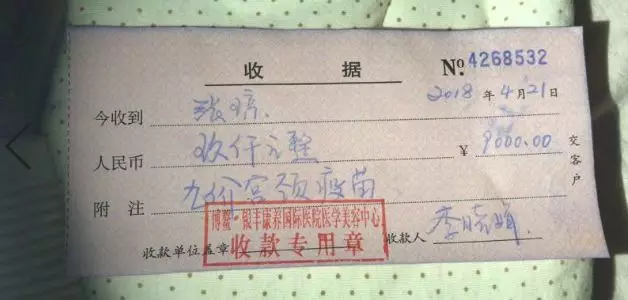 收 据 № 4268532
2018 年 4 月 21 日
今收到 张婷
人民币 玖仟元整 ¥ 9000.00
附 注 九价宫颈疫苗
交客户
博鳌·银丰康养国际医院医学美容中心
收款专用章
收款单位盖章 收款人 李晓娟